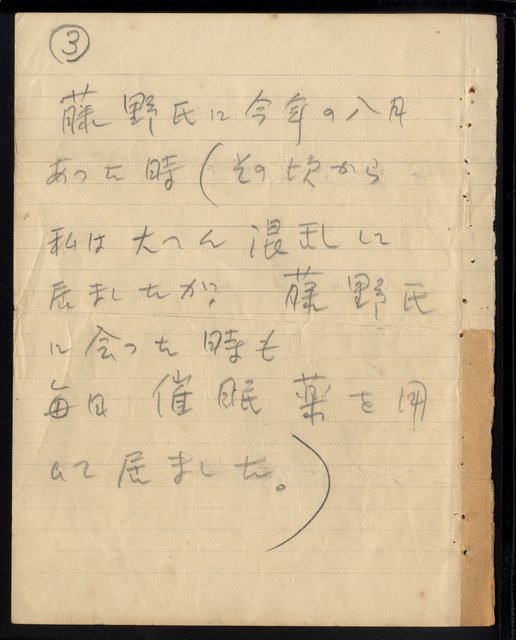 ③
藤野氏に今年の八月
あつた時(その頃から
私は大へん混乱して
居ましたが、藤野氏
に会つた時も
毎日催眠薬を用
ひて居ました。)